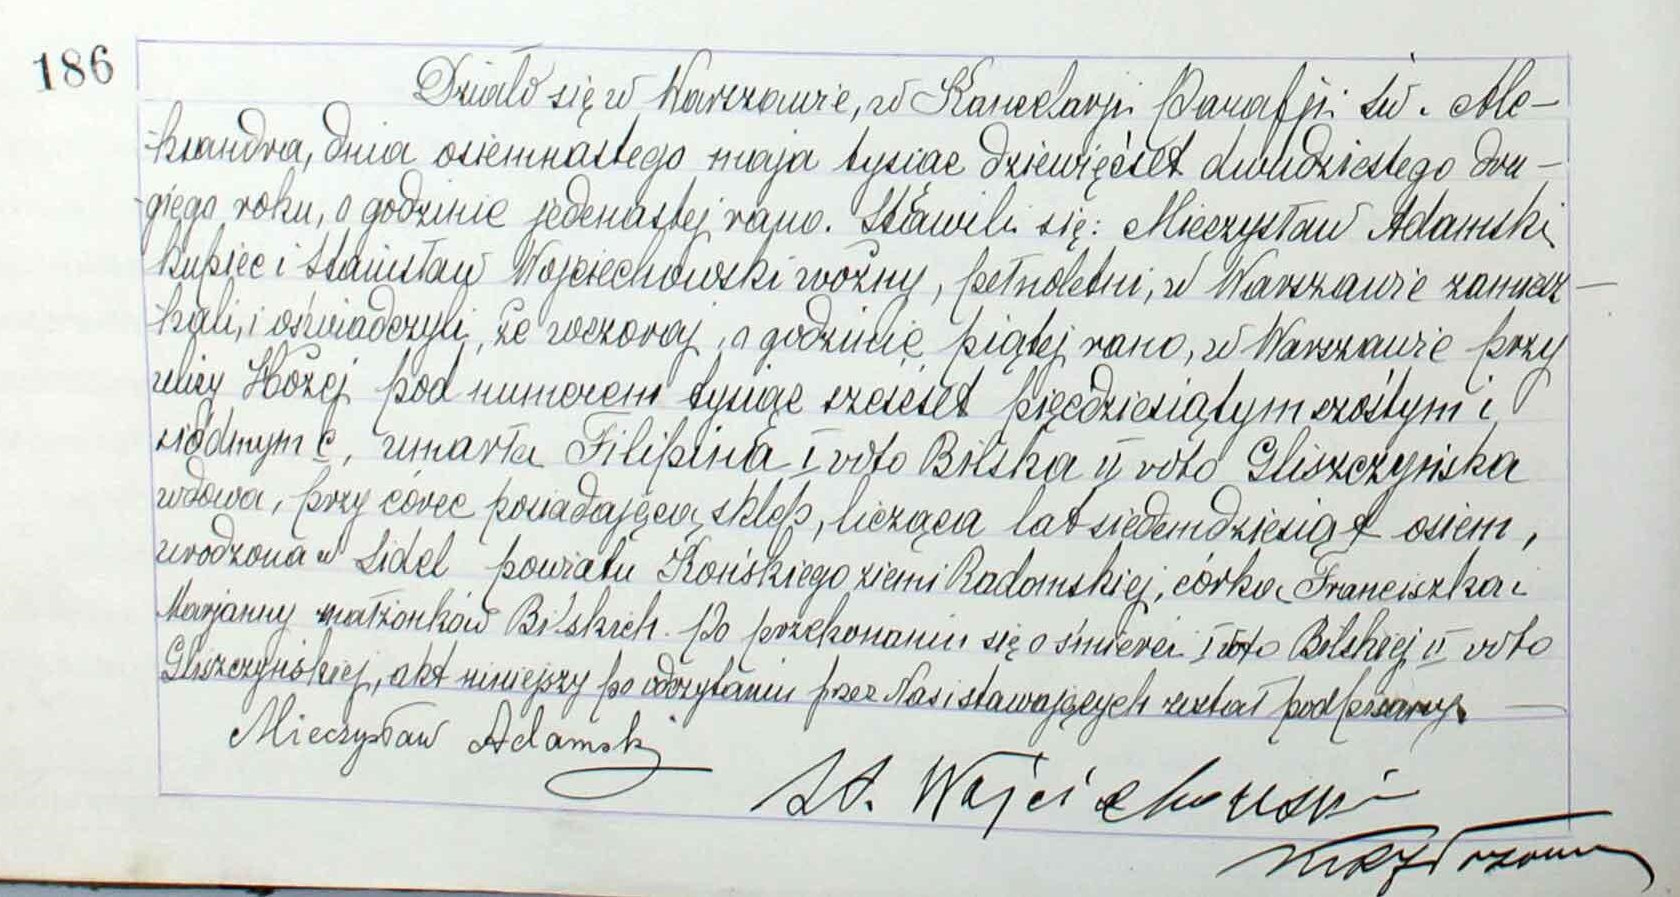 186
Działo się w Warszawie, w Kancelarji Parafji św. Ale-
-ksandra, dnia osiemnastego maja tysiąc dziewięćset dwudziestego dru-
-giego roku, o godzinie jedenastej rano. Stawili się: Mieczysław Adamski
kupiec i Stanisław Wojciechowski woźny, pełnoletni, w Warszawie zamiesz-
kali, i oświadczyli, że wczoraj, o godzinie piątej rano, w Warszawie przy
ulicy Hożej pod numerem tysiąc sześćset pięćdziesiątym szóstym i
siódmym c, umarła Filipina I voto Bilska II voto Gliszczyńska
wdowa, przy córce posiadającej sklep, licząca lat siedemdziesiąt osiem,
urodzona w Sidel powiatu Końskiego ziemi Radomskiej, córka Franciszka i
Marjanny małżonków Bilskich. Po przekonaniu się o śmierci I voto Bilskiej II voto
Gliszczyńskiej, akt niniejszy po odczytaniu przez Nas i stawających został podpisany.
Mieczysław Adamski
St. Wojciechowski